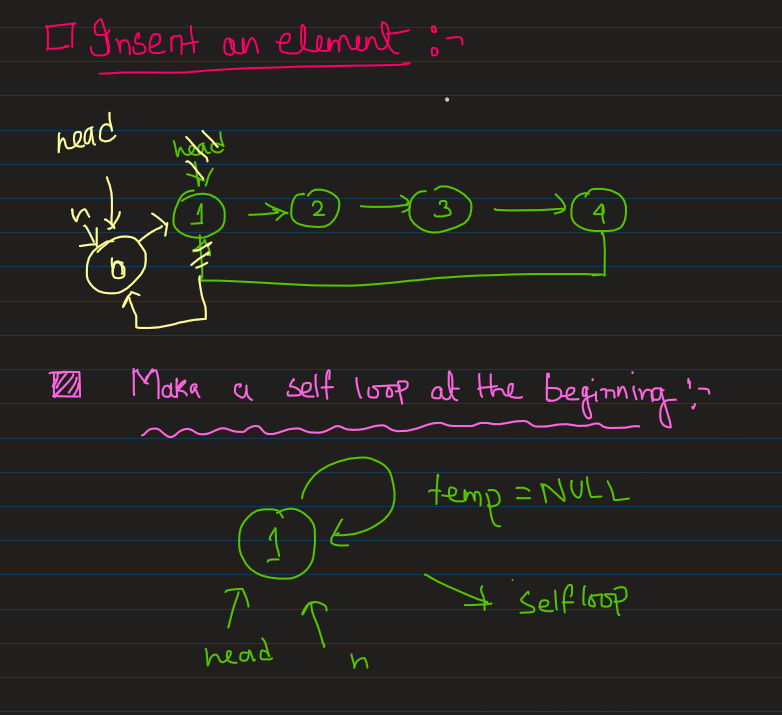 Insert an element :-
head
head
n
1 2 3 4
b
Maka a self loop at the beginning :-
temp = NULL
1
self loop
head
n